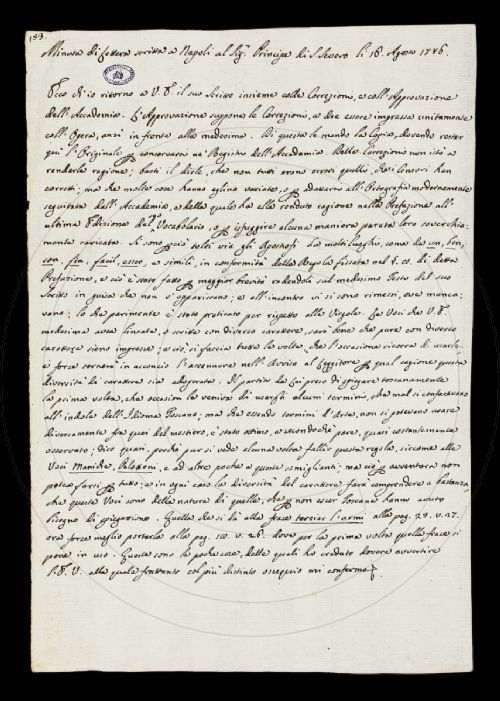 183.
Minuta di Lettera scritta a Napoli al Sig.r Principe di S. Severo li 16. Agosto 1746.
Ecco ch'io ritorno a V. E. il suo Scritto insieme colle Correzioni, e coll'Approvazione
dell'Accademia. L'Approvazione suppone le Correzioni, e dee essere impressa unitamente
coll'Opera, anzi in fronte alla medesima. Di questa le mando la Copia, dovendo restar
qui l'Originale per conservarsi ne' Registri dell'Accademia. Delle Correzioni non istò a
renderle ragione; basti il dirle, che non tutti erano errori quelli, che i Censori han
corretti; ma che molte cose hanno eglino variate, o per adattarsi all'Ortografia modernamente
seguitata dall'Accademia, e della quale ho ella renduto ragione nella Prefazione all'
ultima Edizione del Vocabolario, o per isfuggire alcuna maniera paruta loro soverchia-
mente caricata. Si sono per ciò tolti via gli Apostrofi da molti luoghi, come da un, ben,
son, fin, facil, esser, e simili, in conformità della Regola fissata nel §. di detta
Prefazione, e ciò è stato fatto per maggior brevità radendoli sul medesimo Testo del suo
Scritto in guisa che non v'appariscono; e all'incontro vi si sono rimessi, ove manca-
vano; lo che parimente è stato praticato per rispetto alle Virgole. Le Voci che V. E.
medesima avea lineate, o scritte con diverso carattere, sarà bene che pure con diverso
carattere sieno impresse; e ciò si faccia tutte le volte, che l'occasione ricorra di usarle,
e forse tornerà in acconcio l'accennare nell'Avviso al Leggitore per qual cagione questa
diversità di carattere sia adoprata. Il partito da Lei preso di spiegare toscanamente
la prima volta, che occasion le veniva di usargli alcuni termini, che mal si confacevano
all'indole dell'Idioma Toscano; ma che essendo termini d'Arte, non si potevano usare
diversamente fra quei del mestiero, è stato ottimo, e secondochè pare, quasi costantemente
osservato; dico quasi, perchè pur si vede alcuna volta fallir questa regola, siccome alle
Voci Maniche, Palessoni, e ad altre poche a queste somiglianti; ma ciò per avventura non
potea farsi per tutto; e in ogni caso la diversità del carattere farà comprendere a bastanza,
che queste Voci sono della natura di quelle, che per non esser Toscane hanno avuto
bisogno di spiegazione. Quella che si dà alla frase terciar l'armi alla pag. 28. v. 27.
ora forse meglio portarla alla pag. 10. v. 26. dove per la prima volta quella frase si
pone in uso. Queste sono le poche cose, delle quali ho creduto dovere avvertire
l'E. V. alla quale frattanto col più distinto ossequio mi confermo